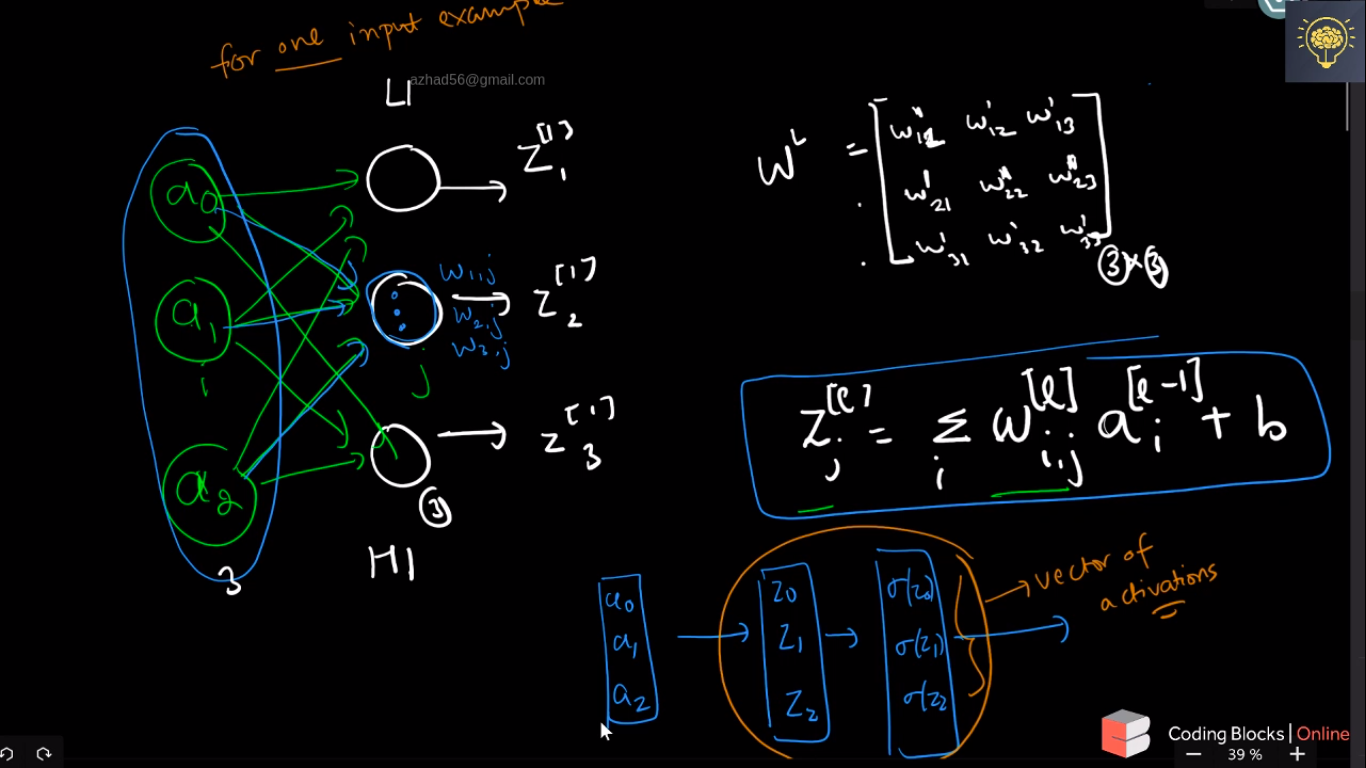 for one input example
azhad56@gmail.com
L1
a₀
a₁
i
a₂
3
Z₁^[1]
w₁,j
w₂,j
w₃,j
Z₂^[1]
j
Z₃^[1]
③
H1
W^L =
w'₁₂ w'₁₃
w'₂₁ w'₂₂ w'₂₃
w'₃₁ w'₃₂ w'₃₃
③×③
Z_j^[l] = Σ_i w_i,j^[l] a_i^[l-1] + b
a₀
a₁
a₂
z₀
z₁
z₂
σ(z₀)
σ(z₁)
σ(z₂
vector of
activations
Coding Blocks | Online
39 %